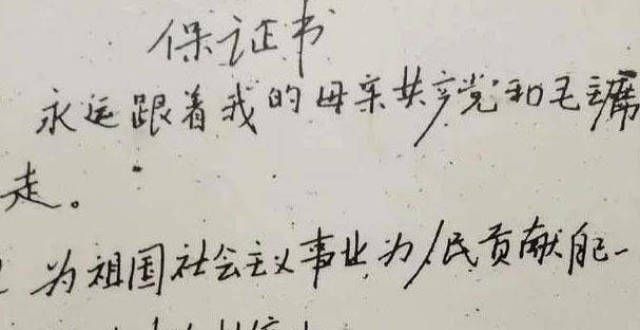 保证书
永远跟着我的母亲共产党和毛主席
走。
为祖国社会主义事业为人民贡献自己一